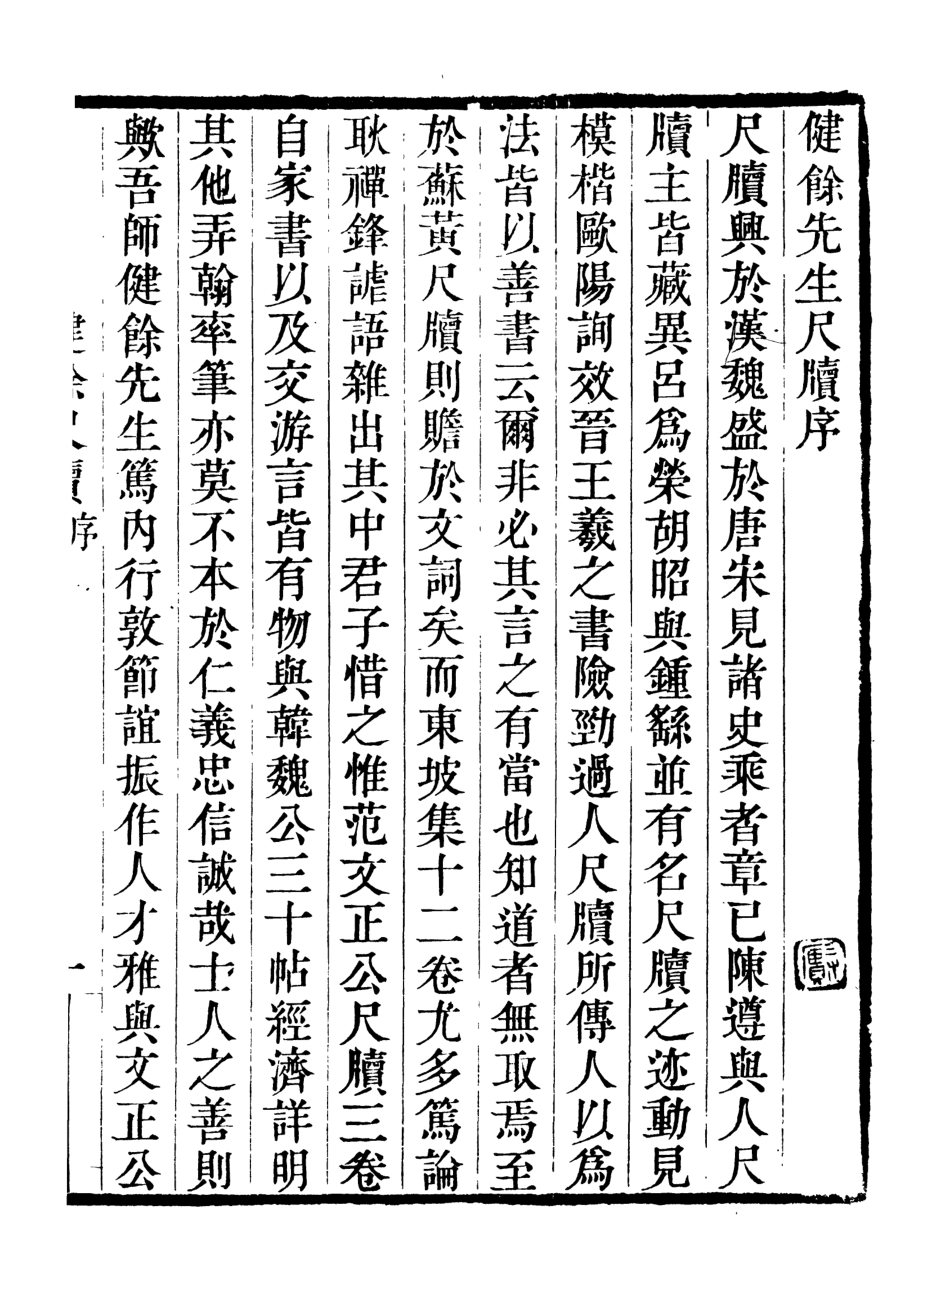 健餘先生尺牘序
尺牘興於漢魏盛於唐宋見諸史乘者章已陳遵與人尺
牘主皆藏異呂為榮胡昭與鍾繇並有名尺牘之迹動見
模楷歐陽詢效晉王羲之書險勁過人尺牘所傳人以為
法皆以善書云爾非必其言之有當也知道者無取焉至
於蘇黃尺牘則贍於文詞矣而東坡集十二卷尤多篤論
耿禪鋒謔語雜出其中君子惜之惟范文正公尺牘三卷
自家書以及交游言皆有物與韓魏公三十帖經濟詳明
其他弄翰率筆亦莫不本於仁義忠信誠哉士人之善則
歟吾師健餘先生篤內行敦節誼振作人才雅與文正公
健餘尺牘序
一